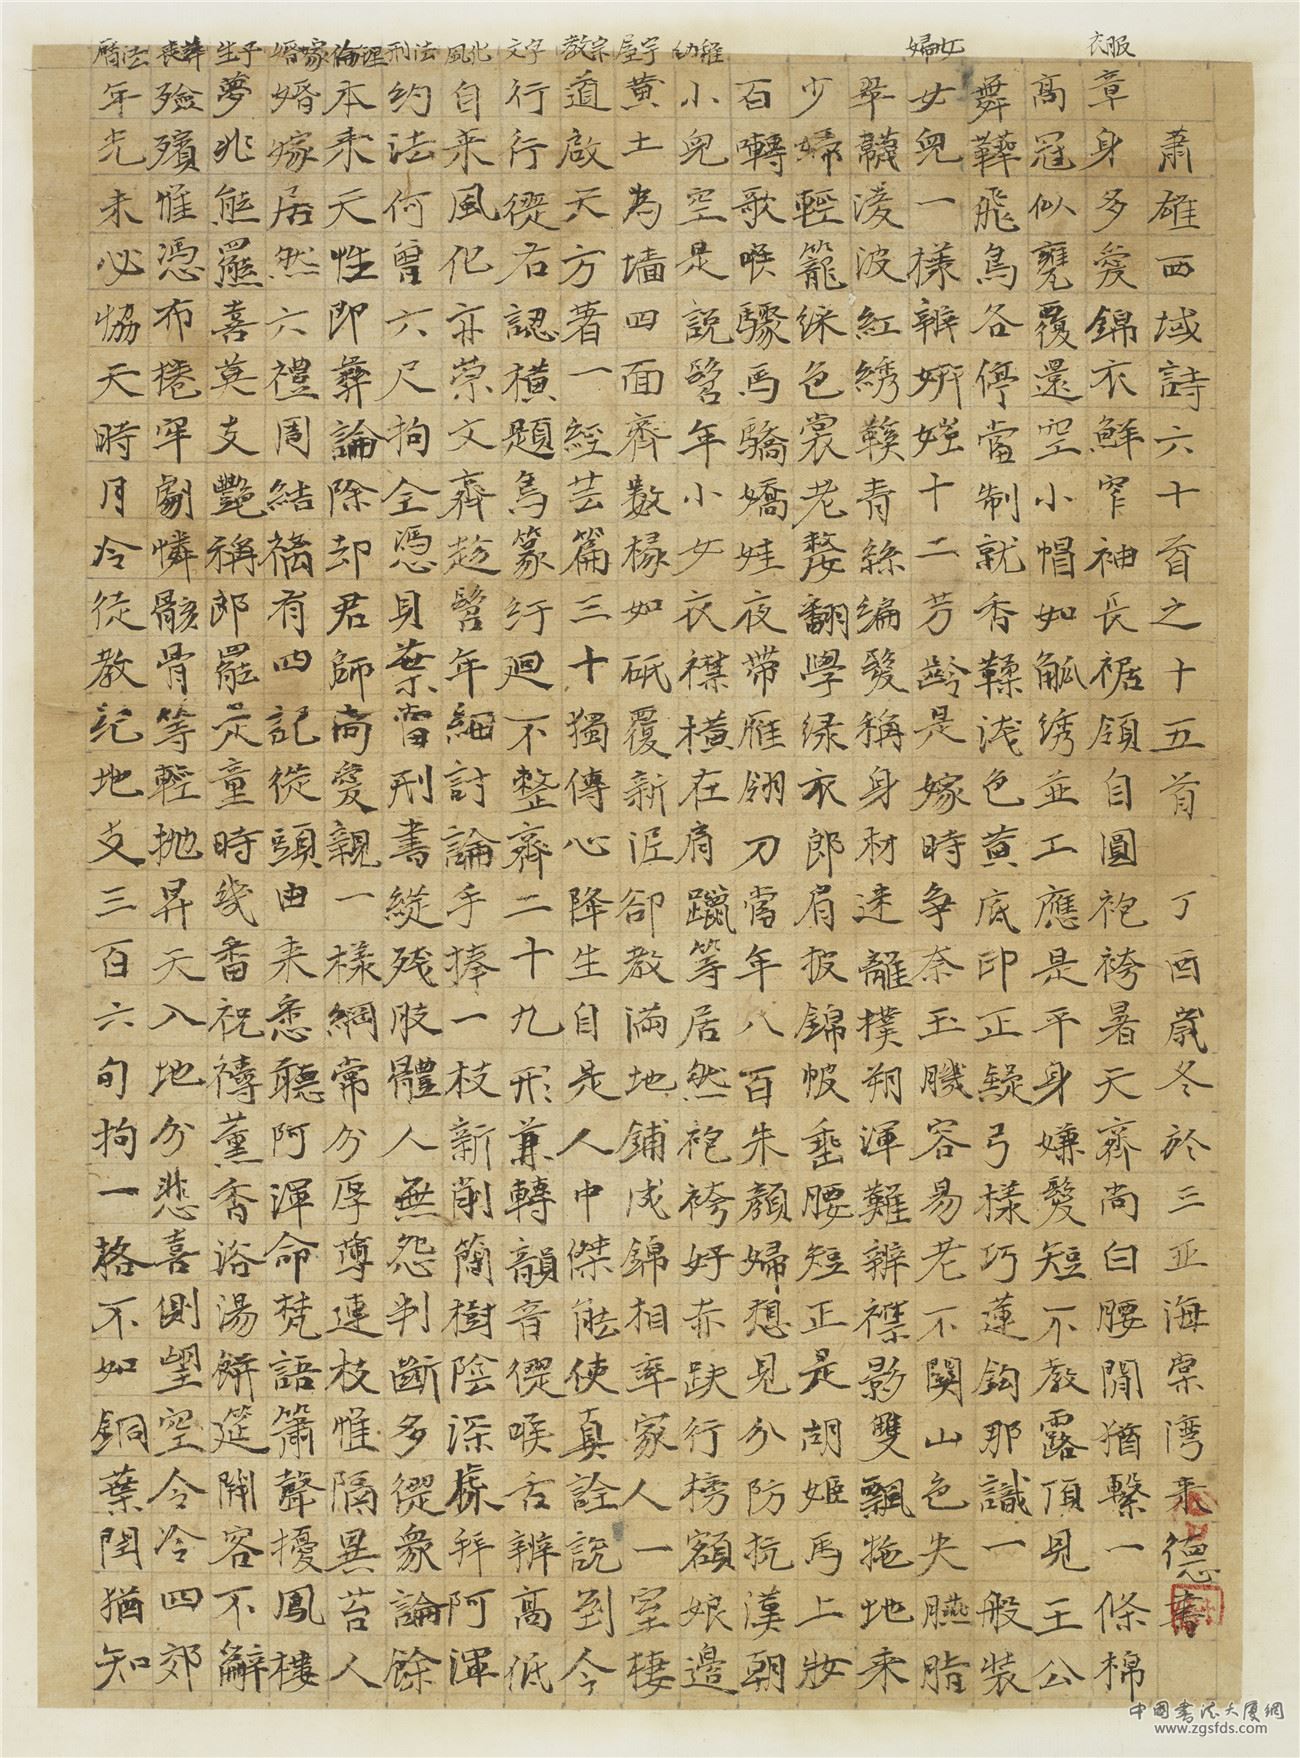 蕭雄西域詩六十首之十五首　丁酉歲冬於三亞海棠湾 德書
衣服
章身多愛錦衣鮮窄袖長裾領自圓袍袴暑天齊尚白腰間猶繫一條棉
高冠似甕覆還空小帽如觚绣並工應是平身嫌髮短不教露頂見王公
舞鞾飛鳥各停當制就香鞣浅色黄底印正疑弓樣巧蓮鈎那識一般装
婦女
女兒一樣辨妍媸十二芳齡是嫁時争奈玉容易老不關山色失臙脂
翠韈淩波紅绣鞵青絲編髮稱身材迷離撲朔渾難辨襟影雙飄拖地来
少婦輕籠綵色裳老嫠翻學绿衣郎肩披錦帔垂腰短正是胡姬馬上妝
百囀歌喉驟馬驕嬌娃夜带雁翎刀當年八百朱顔婦想見分防抗漢朝
幼稚
小兒空是說髫年小女衣襟横在肩躐等居然袍袴好赤趺行榜額娘邊
屋宇
黄土為墙四面齊数椽如砥覆新泥卻教滿地鋪成錦相率家人一室棲
教宗
道啟天方著一經芸篇三十獨傳心降生自是人中傑能使真詮說到今
文字
行行從右認横題鳥篆紆迴不整齊二十九形兼轉韻音從喉舌辨髙低
風化
自来風化亦崇文齊趂髫年細討論手捧一枝新削簡樹陰深處拜阿渾
刑法
約法何曾六尺拘全憑貝葉當刑書縱残肢體人無怨判斷多從衆論餘
倫理
本来天性即彝論除却君師尚愛親一樣綱常分厚薄連枝惟隔異苔人
婚嫁
婚嫁居然六禮周結褵有四記從頭由来悉聽阿渾命梵語簫聲擾鳳樓
生子
夢兆熊羆喜莫支艷稱郎罷定童時幾番祝禱薰香浴湯餅筵開客不辭
喪葬
殮殯惟憑布捲牢劇憐骸骨等輕抛昇天入地分悲喜側望空令冷四郊
曆法
年光未必恊天時月冷從教紀地支三百六旬拘一格不如銅葉閏猶知
中國書法大厦網
www.zgsfds.com